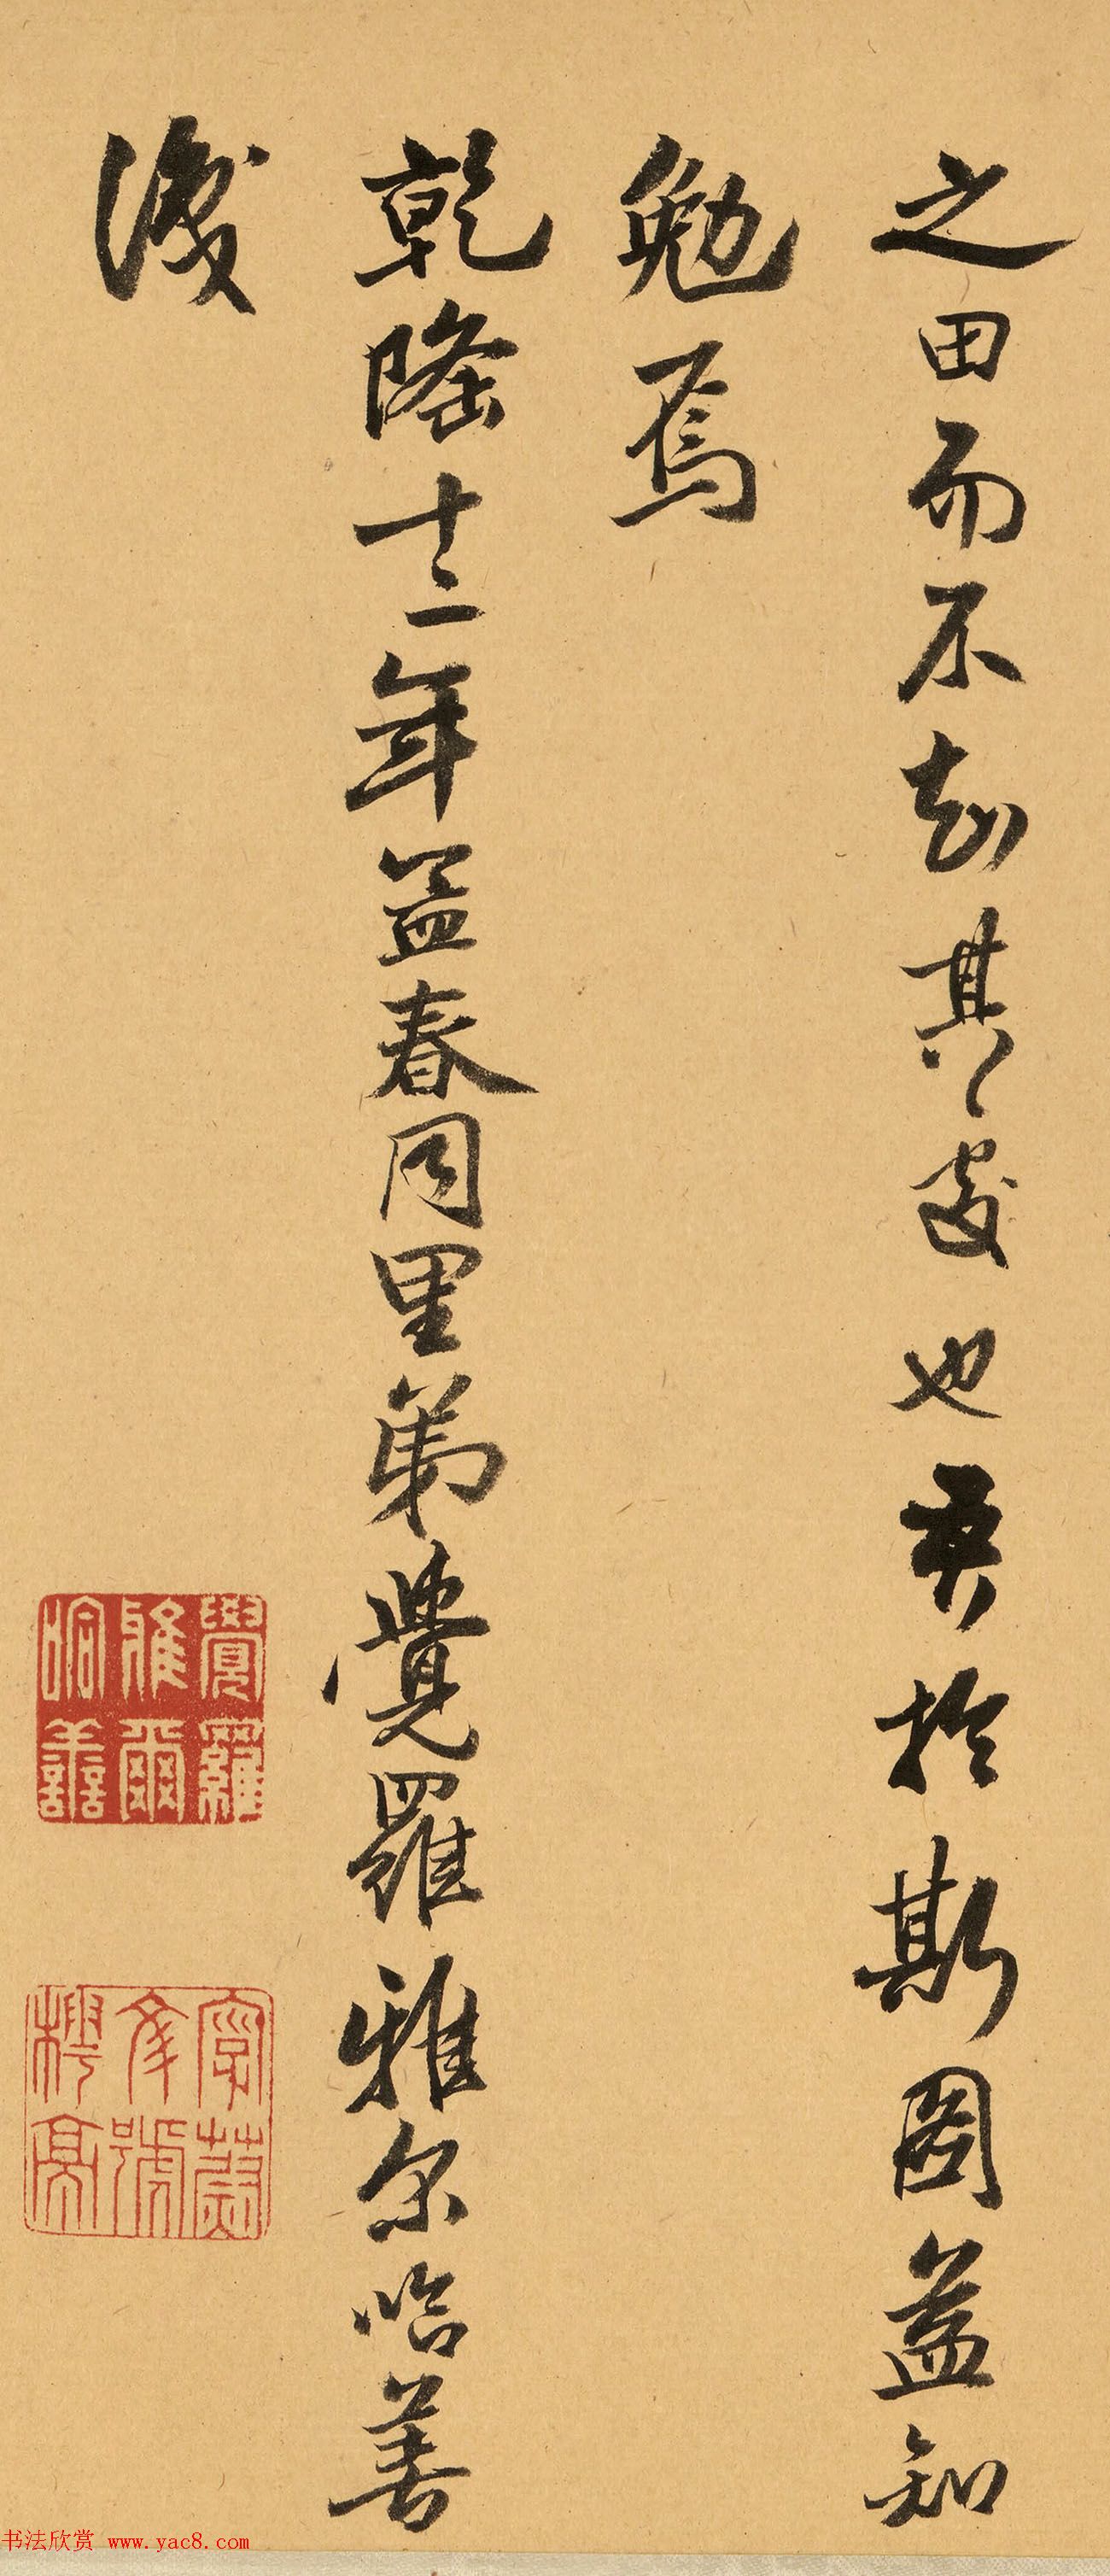 之田而不知其處也吾於斯圖益知
勉焉
乾隆十二年孟春同里弟覺羅雅尔哈善
識
覺羅
雅爾
哈善
字蔚
文號
樗亭
书法欣赏 www.yac8.com